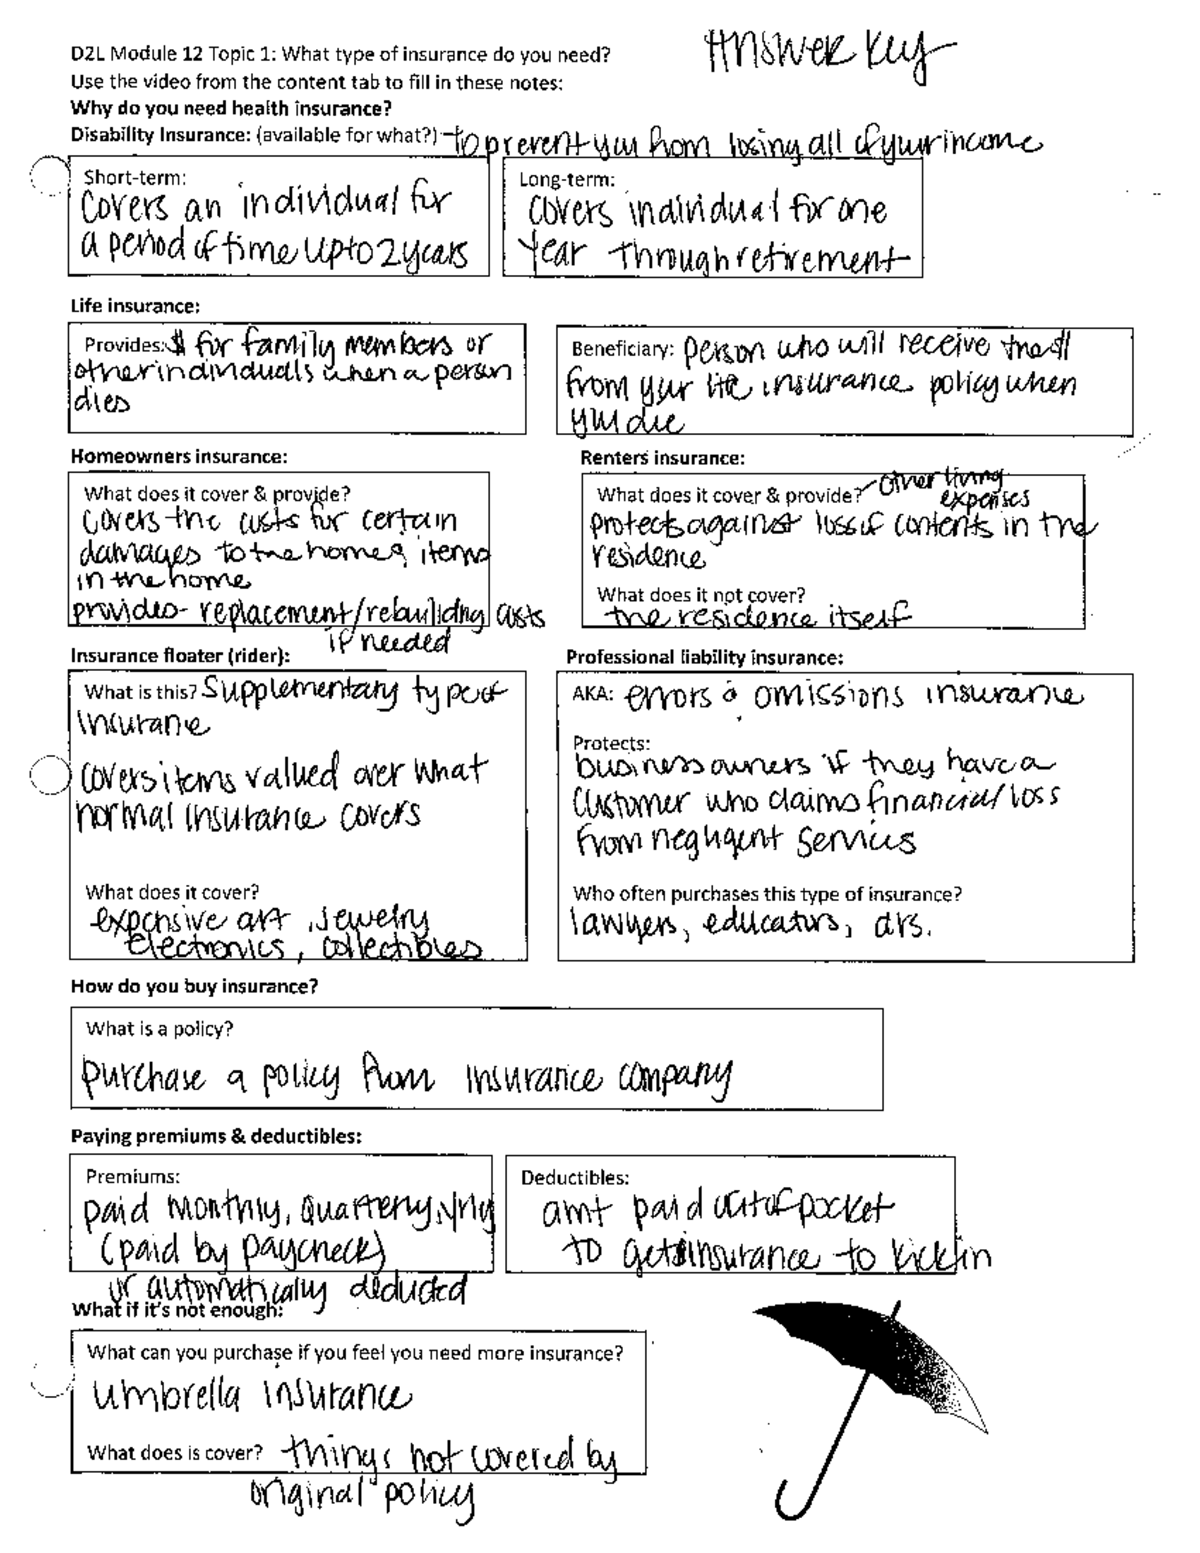 Answer Key
D2L Module 12 Topic 1: What type of insurance do you need?
Use the video from the content tab to fill in these notes:
Why do you need health insurance?
Disability Insurance: (available for what?) to prevent you from losing all of your income
Short-term:
covers an individual for
a period of time up to 2 years
Long-term:
covers individual for one
year through retirement
Life insurance:
Provides: $ for family members or
other individuals when a person
dies
Beneficiary: person who will receive the $
from your life insurance policy when
you die
Homeowners insurance:
What does it cover & provide?
covers the costs for certain
damages to the home & items
in the home
provides - replacement/rebuilding costs
if needed
Renters insurance:
What does it cover & provide? other living
expenses
protects against loss of contents in the
residence
What does it not cover?
the residence itself
Insurance floater (rider):
What is this? Supplementary type of
insurance
covers items valued over what
normal insurance covers
What does it cover?
expensive art, jewelry
electronics, collectibles
Professional liability insurance:
AKA: errors & omissions insurance
Protects:
business owners if they have a
customer who claims financial loss
from negligent services
Who often purchases this type of insurance?
lawyers, educators, drs.
How do you buy insurance?
What is a policy?
purchase a policy from insurance company
Paying premiums & deductibles:
Premiums:
paid monthly, quarterly, yrly
(paid by paycheck)
or automatically deducted
Deductibles:
amt paid out of pocket
to get insurance to kick in
What if it's not enough:
What can you purchase if you feel you need more insurance?
umbrella insurance
What does is cover? things not covered by
original policy